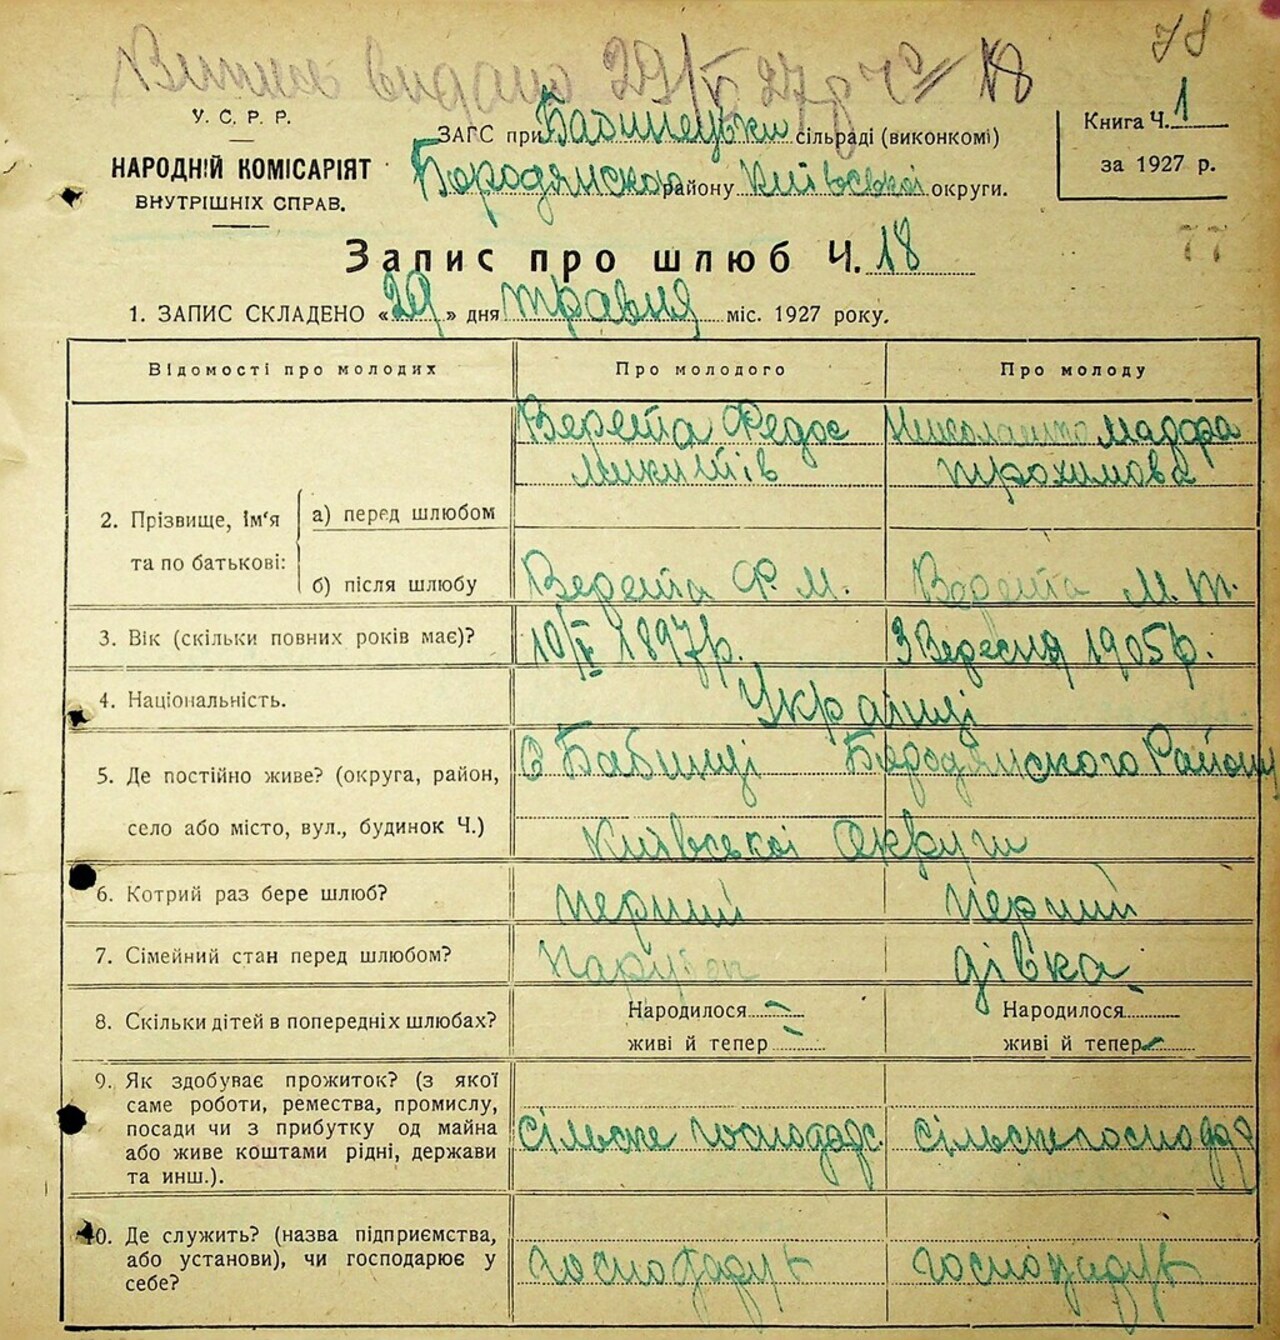 78
Випись видано 29/V 27 р Ч 18
У. С. Р. Р.
НАРОДНІЙ КОМІСАРІЯТ
ВНУТРІШНІХ СПРАВ.
ЗАГС при Бабинецьки сільраді (виконкомі)
Бородянског району Київської округи.
Книга Ч. 1
за 1927 р.
77
Запис про шлюб Ч. 18
1. ЗАПИС СКЛАДЕНО «29» дня травня міс. 1927 року.
Відомості про молодих Про молодого Про молоду
2. Прізвище, ім'я та по батькові:
а) перед шлюбом
Верета Федос
Микитів
Николаенко
трохимова
б) після шлюбу Верета Ф. М. Верета М. Т.
3. Вік (скільки повних років має)? 10/V 1897 р. 3 Вересня 1905 р.
4. Національність. Українці
5. Де постійно живе? (округа, район, С Бабинці Бородянского Району
село або місто, вул., будинок Ч.) Київської Округи
6. Котрий раз бере шлюб? перший перший
7. Сімейний стан перед шлюбом? парубок дівка
8. Скільки дітей в попередніх шлюбах?
Народилося - Народилося -
живі й тепер - живі й тепер -
9. Як здобуває прожиток? (з якої
саме роботи, ремества, промислу,
посади чи з прибутку од майна
або живе коштами рідні, держави
та инш.).
сільске господар. сільске господар
10. Де служить? (назва підприємства,
або установи), чи господарює у
себе?
господарут господарут